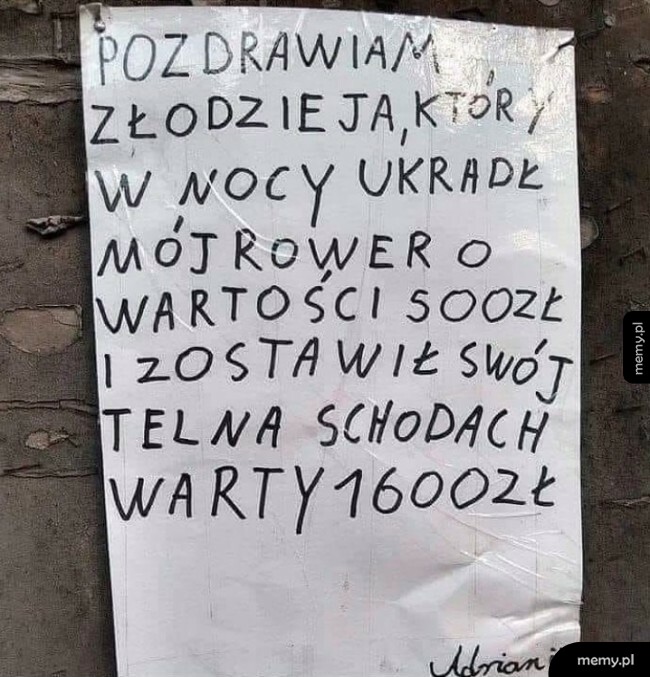 POZDRAWIAM
ZŁODZIEJA, KTÓRY
W NOCY UKRADŁ
MÓJ ROWER O
WARTOŚCI 500ZŁ
I ZOSTAWIŁ SWÓJ
TEL NA SCHODACH
WARTY 1600ZŁ
Adrian
memy.pl
memy.pl